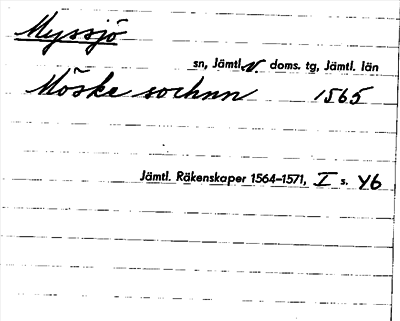 Myssjö
sn, Jämtl. v. doms. tg, Jämtl. län
Möske sochnn 1565
Jämtl. Räkenskaper 1564-1571, I s. 46